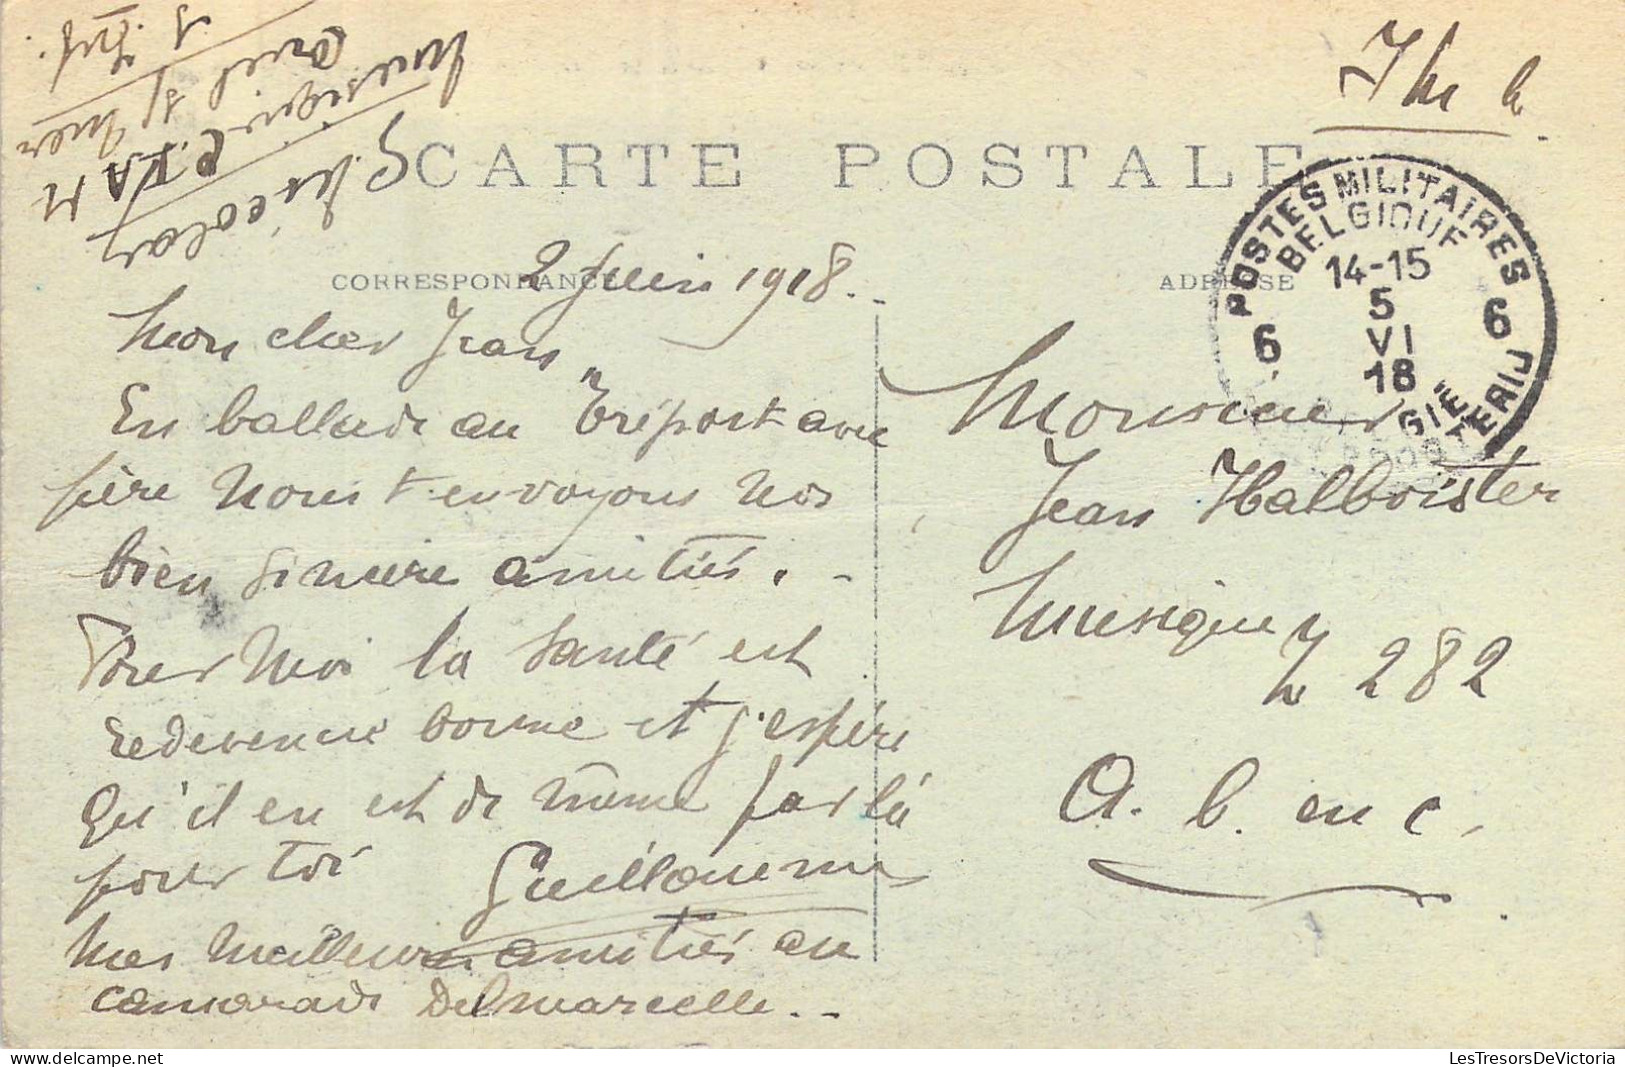 CARTE POSTALE
CORRESPONDANCE
ADRESSE
POSTES MILITAIRES
BELGIQUE
14-15
5
VI
18
6 6
G. Nicolay
Musique C.I.A.M
2 Juin 1918..
Mon cher Jean,
En ballade au Tréport avec
père nous t'envoyons nos
bien sincère amitiés. -
Pour moi la santé est
redevenue bonne et j'espère
qu'il en est de même par là
pour toi Guillaume
Mes meilleures amitiés au
camarade Delmarcelle..
Monsieur
Jean Halboister
Musique
Z 282
A. b. en c.
LesTresorsDeVictoria